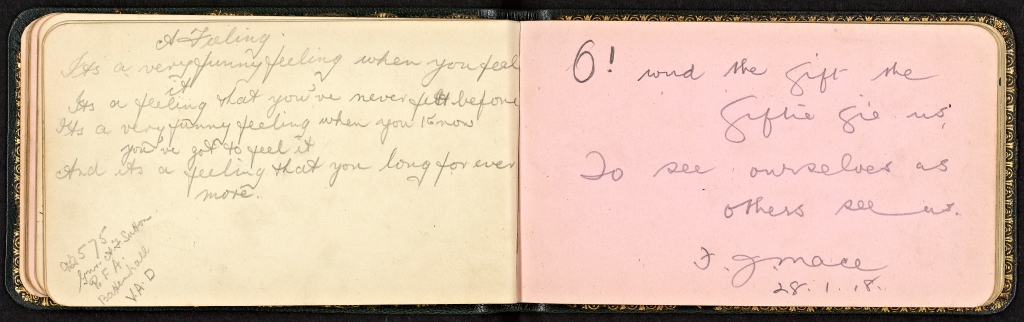 A Feeling.
Its a very funny feeling when you feel
it
Its a feeling that you've never felt before
Its a very funny feeling when you know
you've got to feel it
And its a feeling that you long for ever
more.
92575
Gnr A F Sutton
R. F. A.
V.A.D
O! wud the gift the
Giftie gie us,
To see ourselves as
others see us.
F. J. Mace
28.1.18.